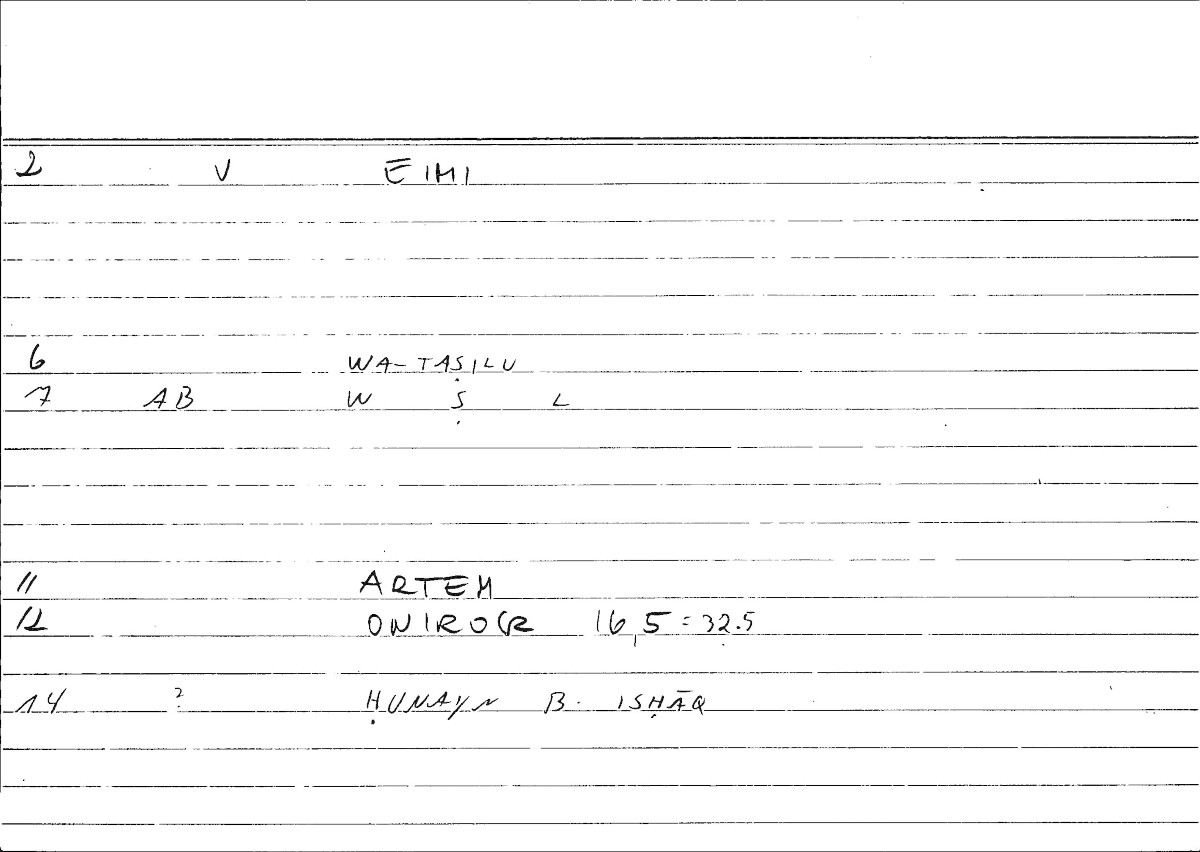 2 V ĒIMI
6 WA-TAṢILU
7 AB W Ṣ L
11 ARTEM
12 ONIROCR 16,5=32.5
14 ? ḤUNAYN B. ISḤĀQ